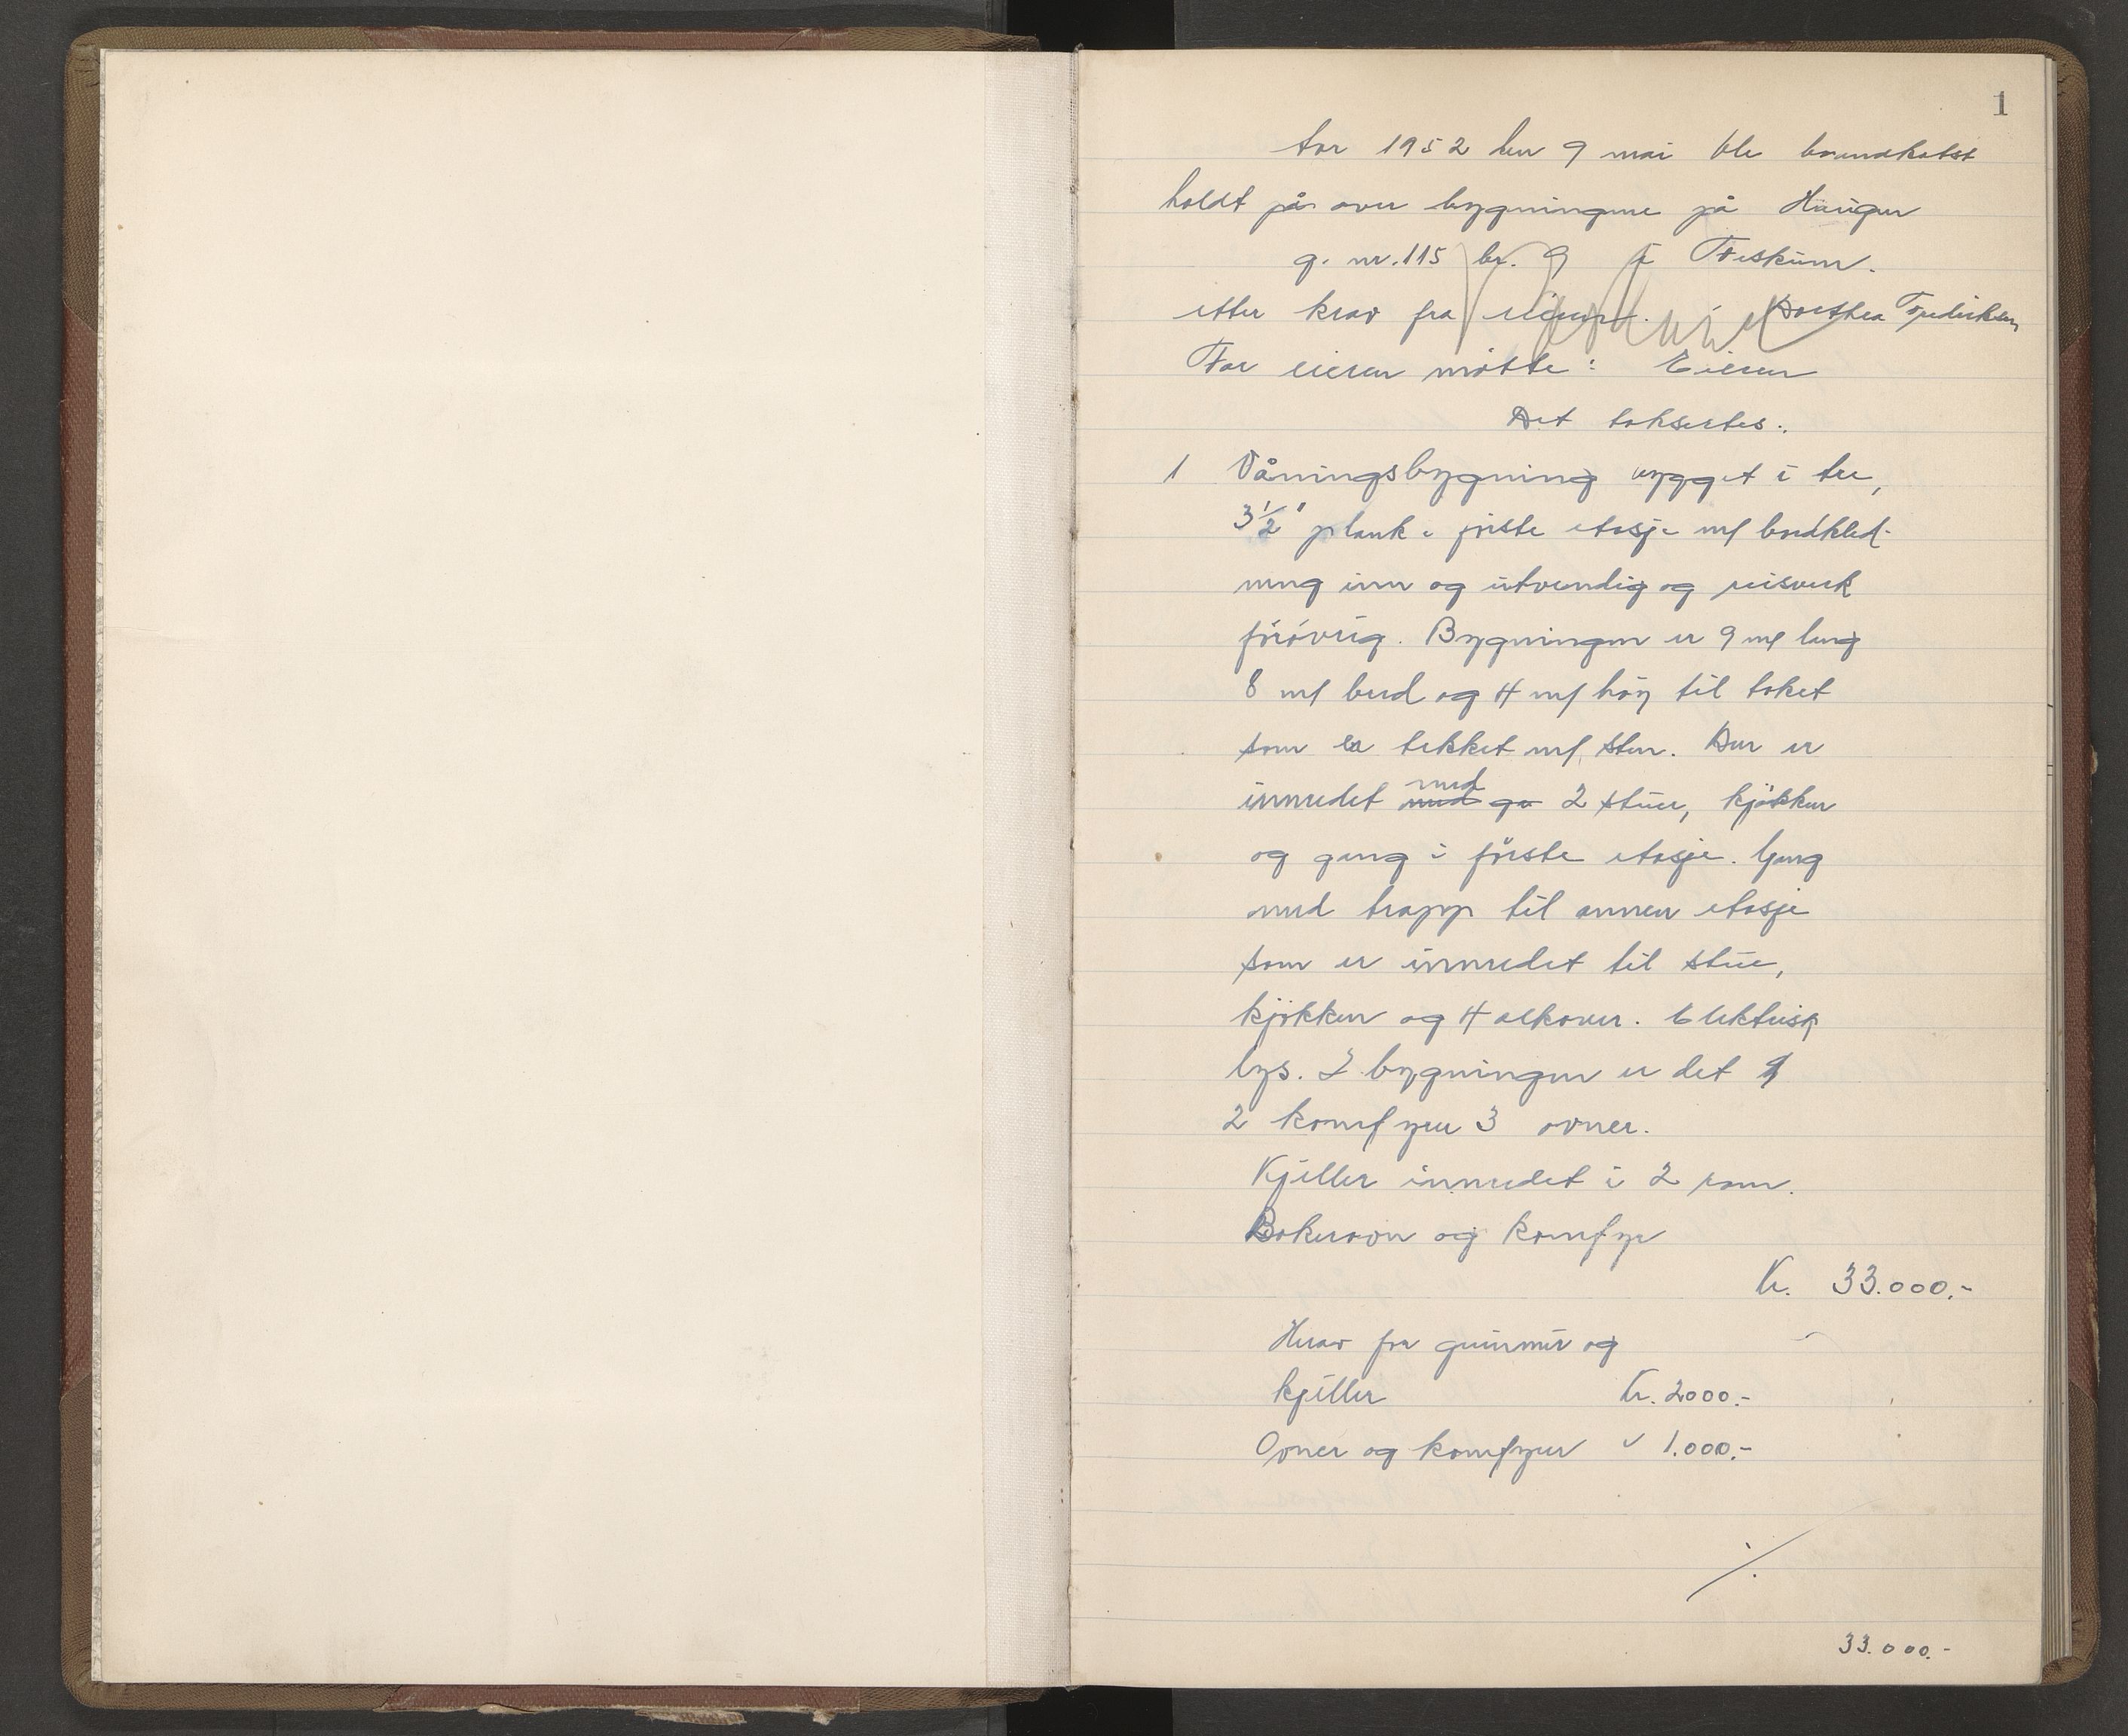 1
Aar 1952 den 9 mai ble brandtakst
holdt på over bygningene på Haugen
g. nr. 115 br. 9 i Feskum.
etter krav fra eieren. Dorthea Fredriksen
For eieren møtte: Eieren
Det taksertes:
1 Våningsbygning bygget i tre,
3 1/2" plank i første etasje m/ bordkled-
ning inn og utvendig og reisverk
forøvrig. Bygningen er 9 m/ lang
8 m/ bred og 4 m/ høy til taket
som er tekket m/ sten. Den er
innredet med 2 stuer, kjøkken
og gang i første etasje. Gang
med trapp til annen etasje
som er innredet til stue,
kjøkken og 4 alkover. Elektrisk
lys. I bygningen er det
2 komfyrer 3 ovner.
Kjeller innredet i 2 rom.
Bakerovn og komfyr
Kr. 33.000.-
Herav for grunmur og
kjeller Kr. 2000.-
Ovner og komfyrer " 1.000.-
./.
33.000.-